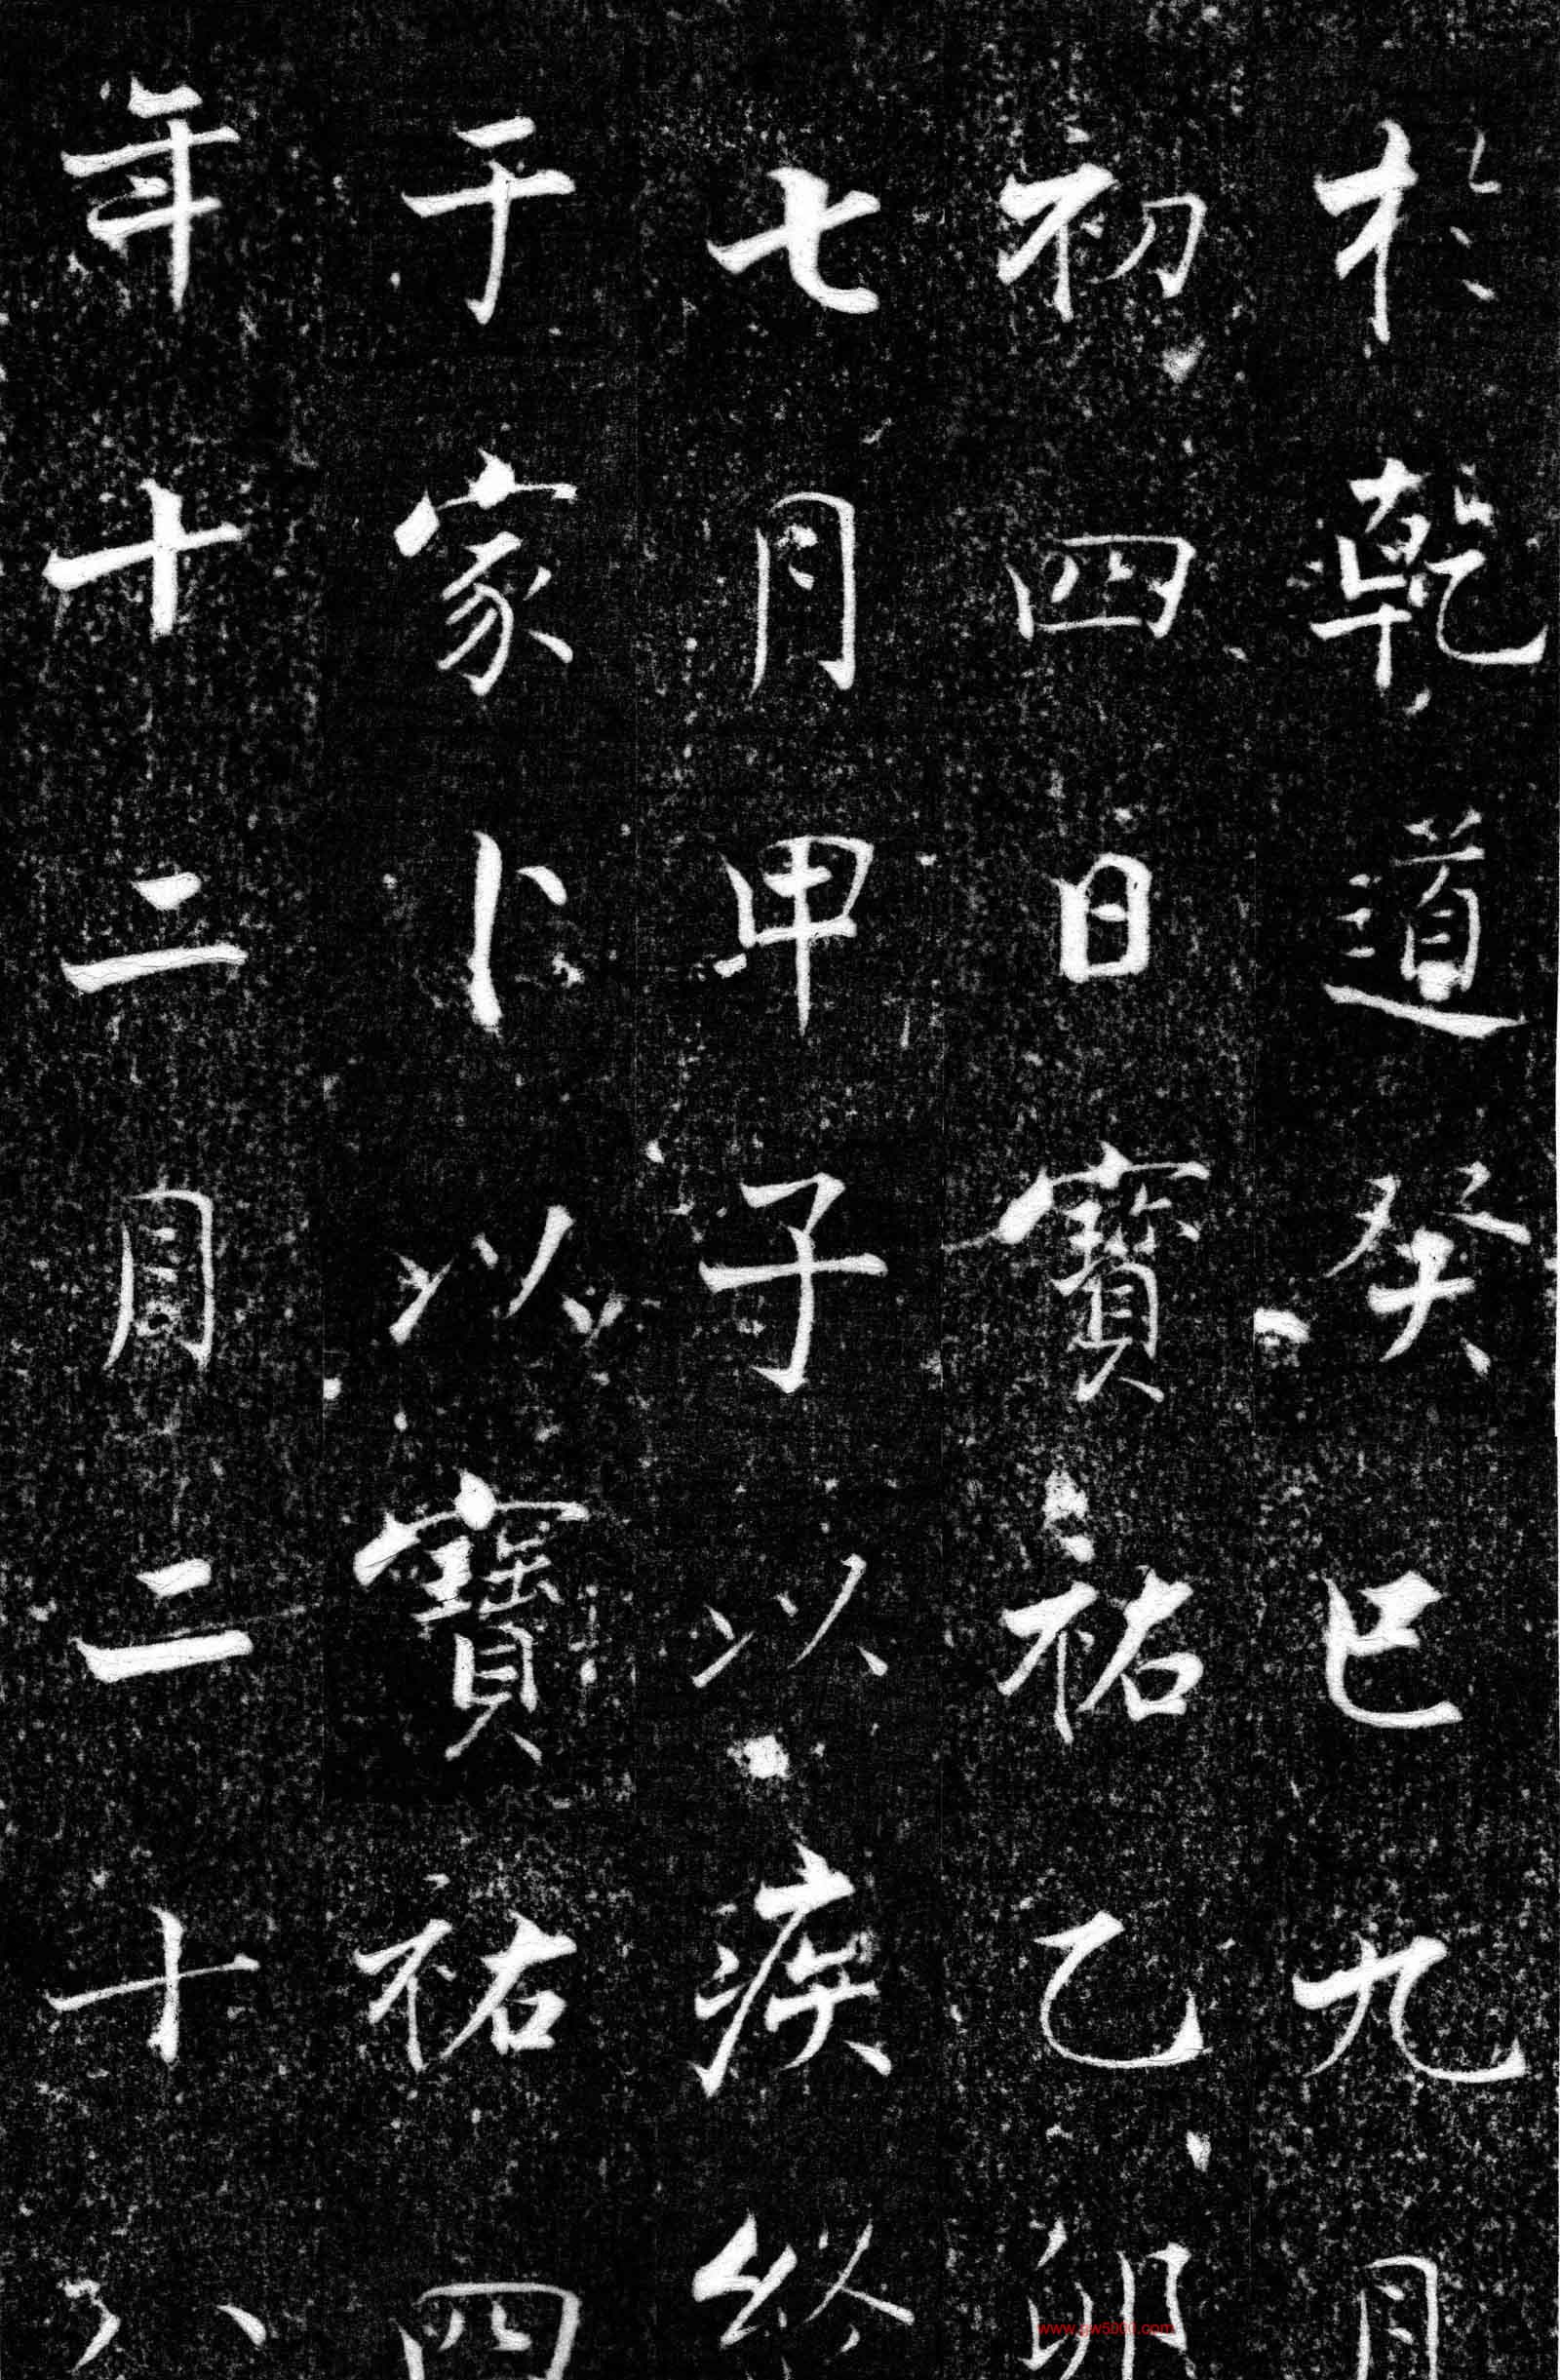 於乾道癸巳九月
初四日寶祐乙卯
七月甲子以疾終
于家卜以寶祐四
年十二月二十八
www.gw5000.com